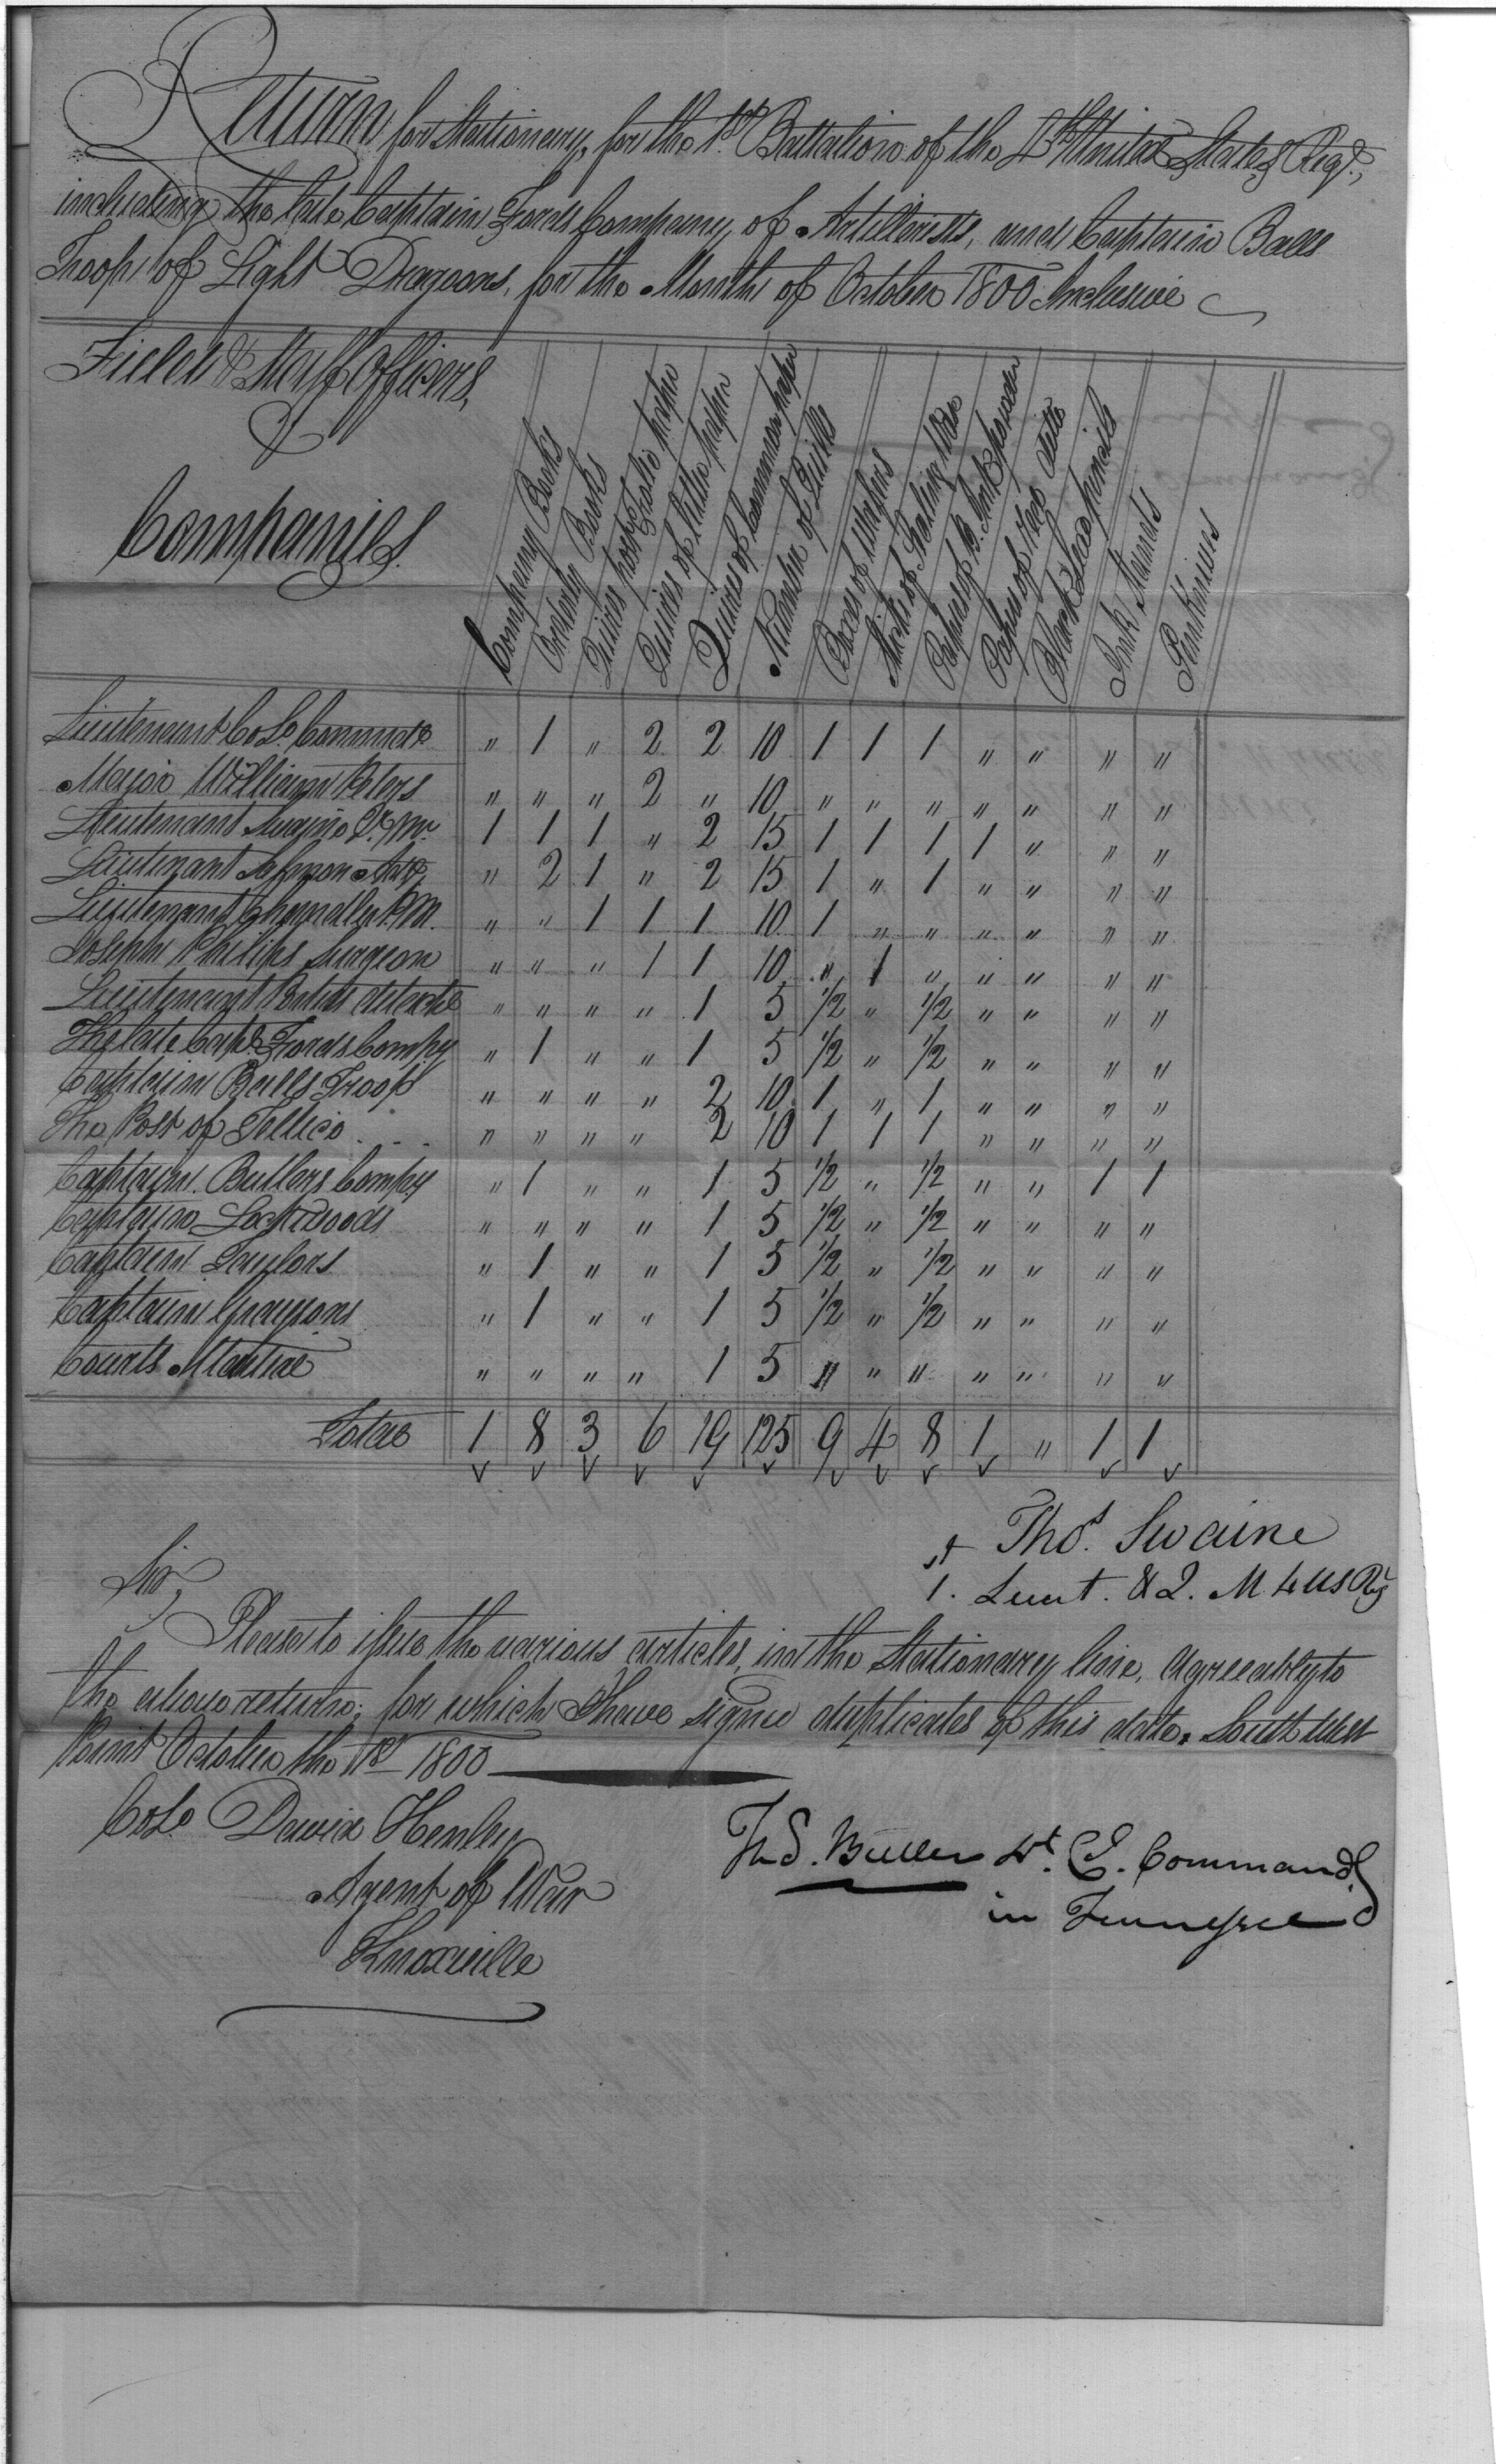 Return for Stationary, for the 1st Battalion of the 4th United States Regt.,
including the late Captain Fords Company of Artillerists, and Captain Balls
Troop of Light Dragoons, for the Month of October 1800 Inclusive
Field & Staff Officers,
&
Companies.
Company Books
Orderly Books
Quires post Folio paper
Quires of letter paper
Quires of Common paper
Number of Quills
Boxes of Wafers
Sticks of Sealing Wax
Papers of B. Ink powder
Papers of red ditto
Black Lead pencils
Ink Stands
Penknives
Lieutenant Colo. Commdt. " 1 " 2 2 10 1 1 1 " " " "
Major William Peters " " " 2 " 10 " " " " " " "
Lieutenant Swaine Qr. Mr. 1 1 1 " 2 15 1 1 1 1 " " "
Lieutenant Johnson " 2 1 " 2 15 1 " 1 " " " "
Lieutenant P.M. " " 1 1 1 10 1 " " " " " "
Joseph Philips Surgeon " " " 1 1 10 " 1 " " " " "
Lieutenant " " " " 1 5 1/2 " 1/2 " " " "
The late Capt. Fords Compy " 1 " " 1 5 1/2 " 1/2 " " " "
Captain Balls Troop " " " " 2 10 1 " 1 " " " "
The Post of Tellico " " " " 2 10 1 1 1 " " " "
Captain Butlers Compy " 1 " " 1 5 1/2 " 1/2 " " 1 1
Captain Lockwoods " " " " 1 5 1/2 " 1/2 " " " "
Captain Taylors " 1 " " 1 5 1/2 " 1/2 " " " "
Captain Graysons " 1 " " 1 5 1/2 " 1/2 " " " "
Courts Martial " " " " 1 5 " " " " " " "
Total 1 8 3 6 19 125 9 4 8 1 " 1 1
Thos. Swaine
1st. Lieut. & Q. M 4 US Rg
Sir,
Please to issue the various articles, in the Stationary line, agreeably to
the above return; for which I have signed duplicates of this date. South West
Point October the 1st 1800
Colo. David Henley
Agent of War
Knoxville
Ths. Butler Lt. C. Commandt.
in Tennessee